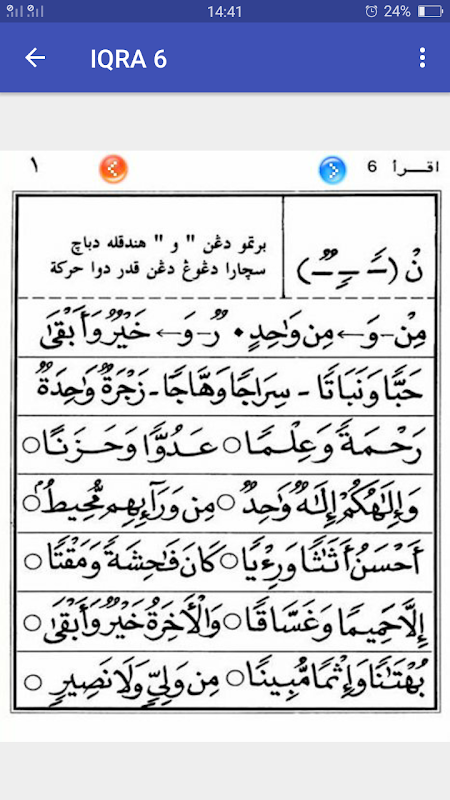 14:41 24%
IQRA 6
اقــرأ 6 ١
نْ (ــًـ ــٍـ ــٌـ)
برتمو دڠن " و " هندقله دباچ
سچارا دڠوڠ دڠن قدر دوا حركة
مِنْ - وَ ← مِن وَٰاحِدٍ • رٌ - وَ ← خَيْرٌ وَأَبْقَىٰ
حَبًّا وَنَبَاتًا - سِرَاجًا وَهَّاجًا - زَجْرَةٌ وَٰاحِدَةٌ
رَحْمَةً وَعِلْمًا ○ عَدُوًّا وَحَزَنًا ○
وَإِلَٰهُكُمْ إِلَٰهٌ وَٰاحِدٌ ○ مِن وَرَآءِهِم مُّحِيطٌ ○
أَحْسَنُ أَثَٰثًا وَرِءْيًا ○ كَانَ فَٰحِشَةً وَمَقْتًا ○
إِلَّا حَمِيمًا وَغَسَّاقًا ○ وَالْأَخِرَةُ خَيْرٌ وَأَبْقَىٰ ○
بُهْتَٰنًا وَإِثْمًا مُّبِينًا ○ مِن وَلِيٍّ وَلَا نَصِيرٍ ○